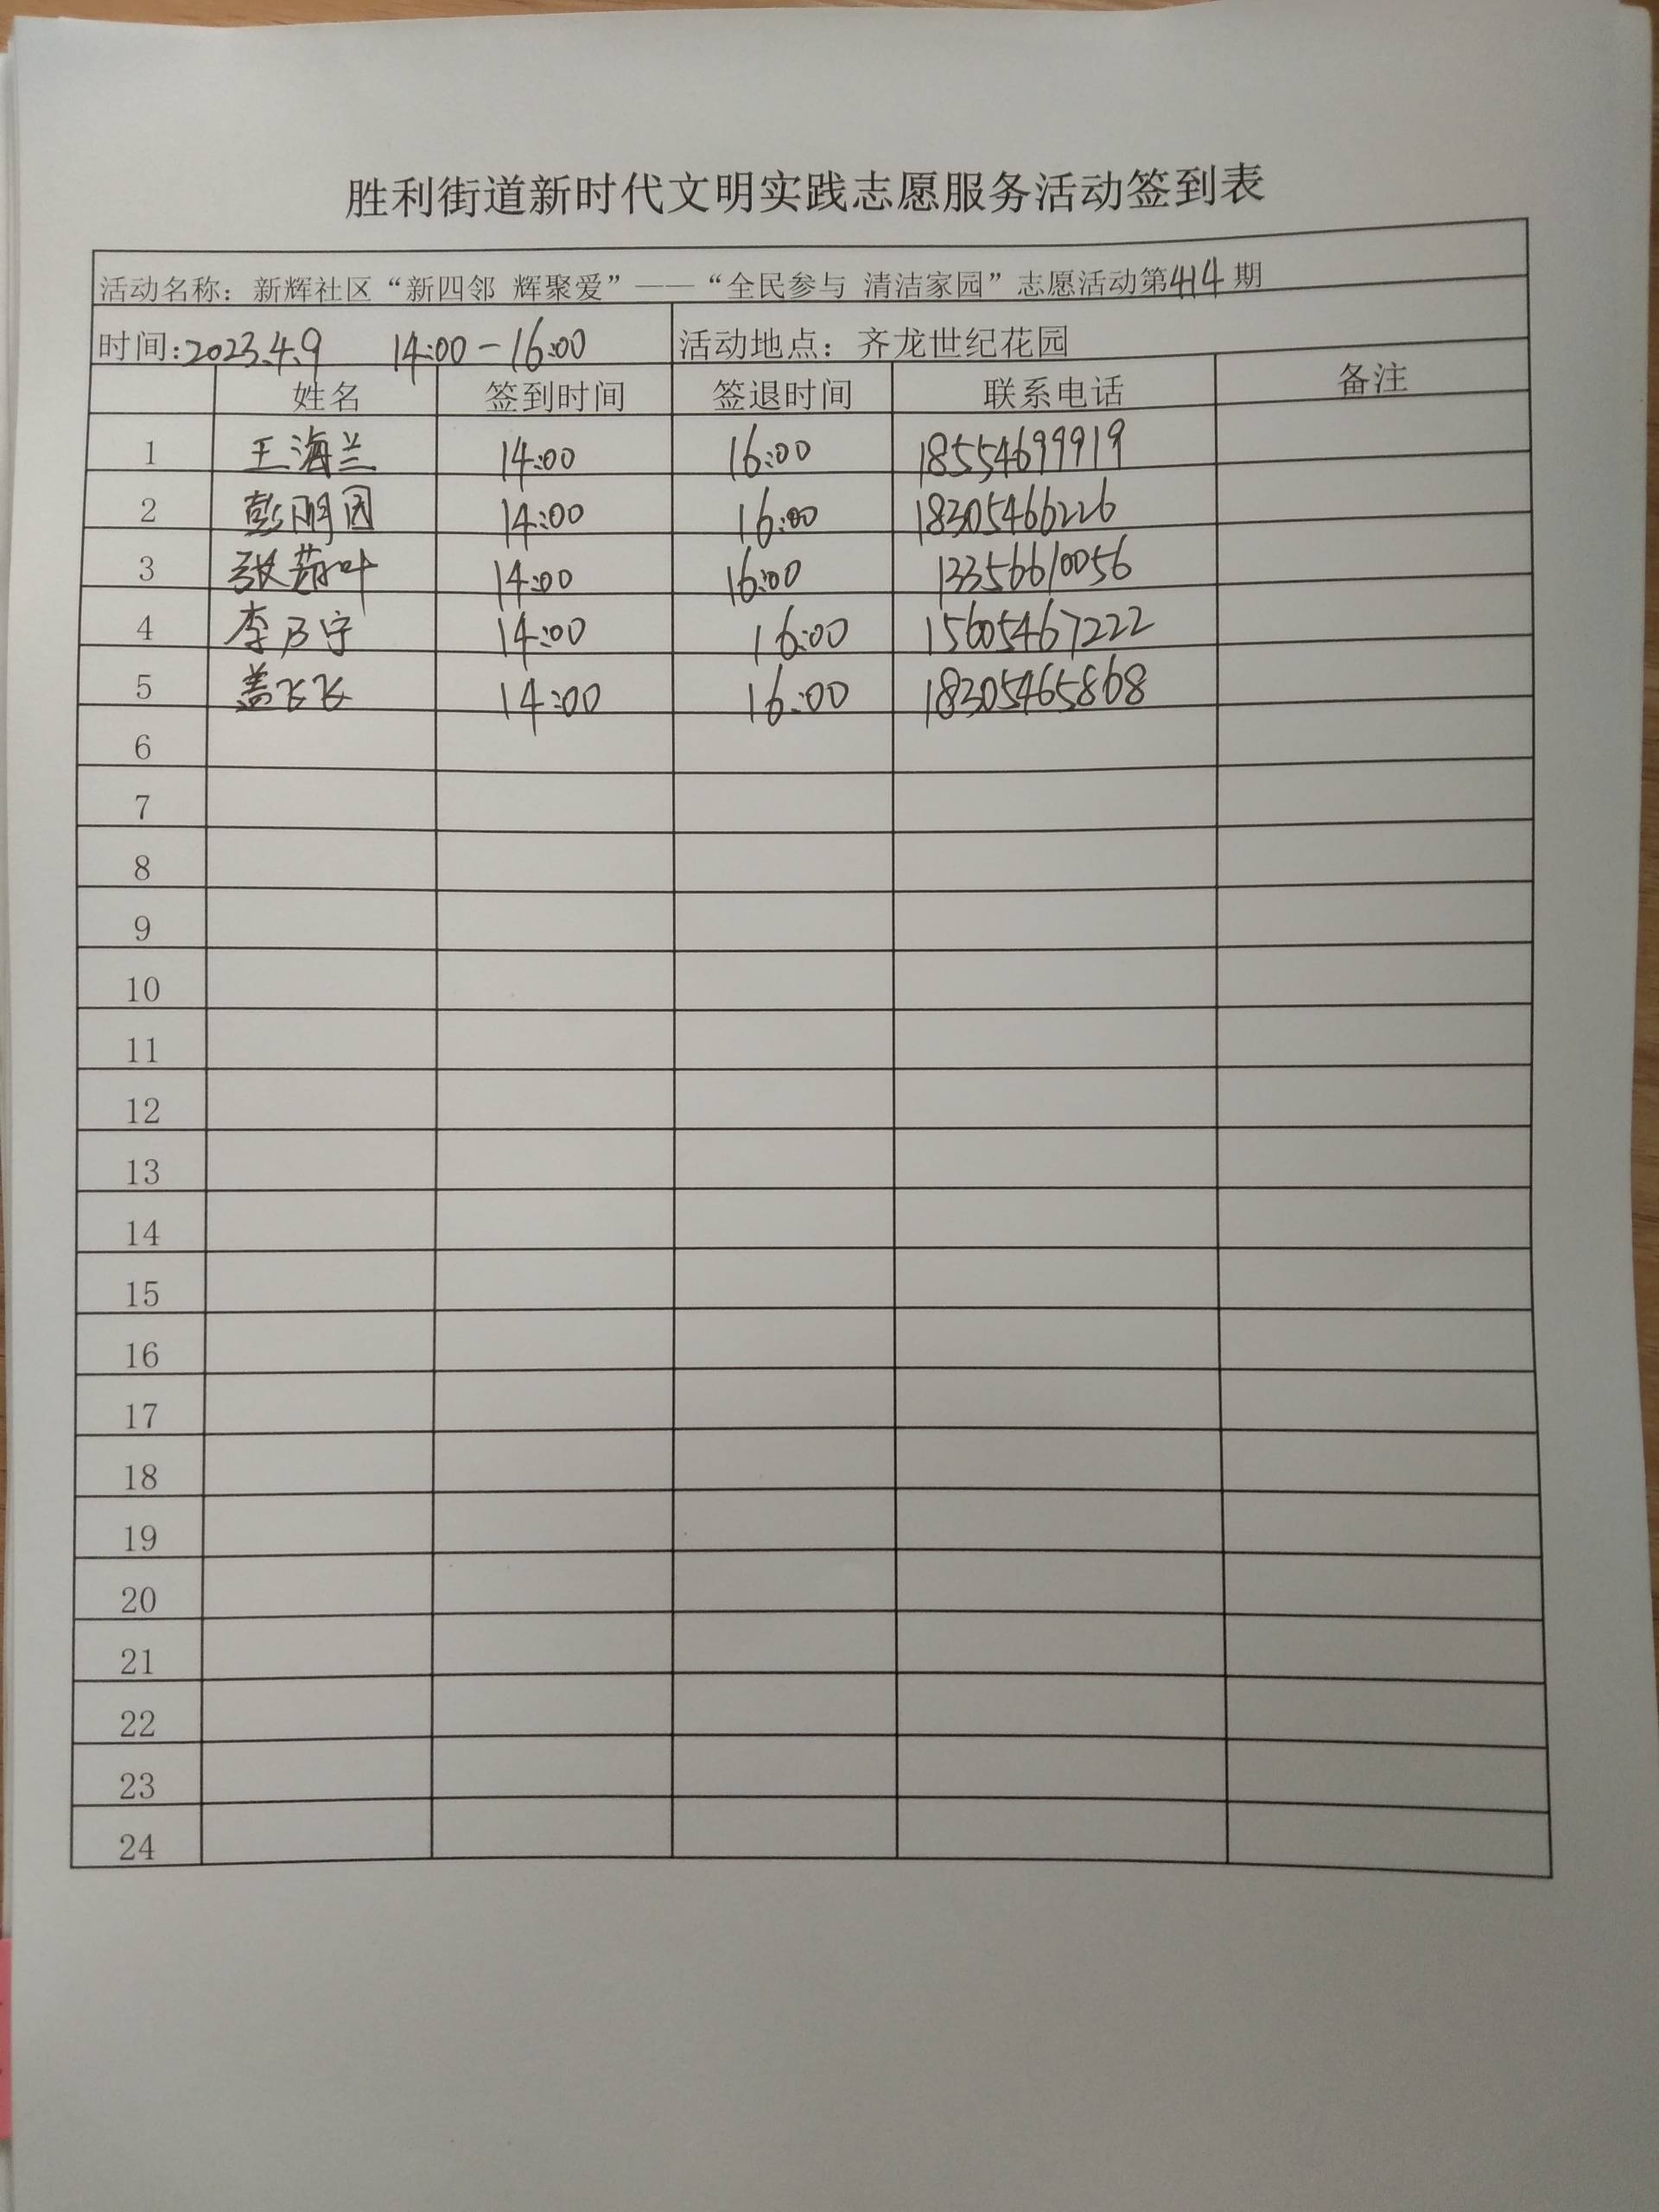 胜利街道新时代文明实践志愿服务活动签到表
活动名称：新辉社区“新四邻 辉聚爱”——“全民参与 清洁家园”志愿活动第414期
时间:2023.4.9 14:00-16:00 活动地点：齐龙世纪花园
姓名 签到时间 签退时间 联系电话 备注
1 王海兰 14:00 16:00 18554699919
2 彭明园 14:00 16:00 18305466226
3 张荷叶 14:00 16:00 13356610056
4 李乃宇 14:00 16:00 15605467222
5 盖飞飞 14:00 16:00 18305465868
6
7
8
9
10
11
12
13
14
15
16
17
18
19
20
21
22
23
24